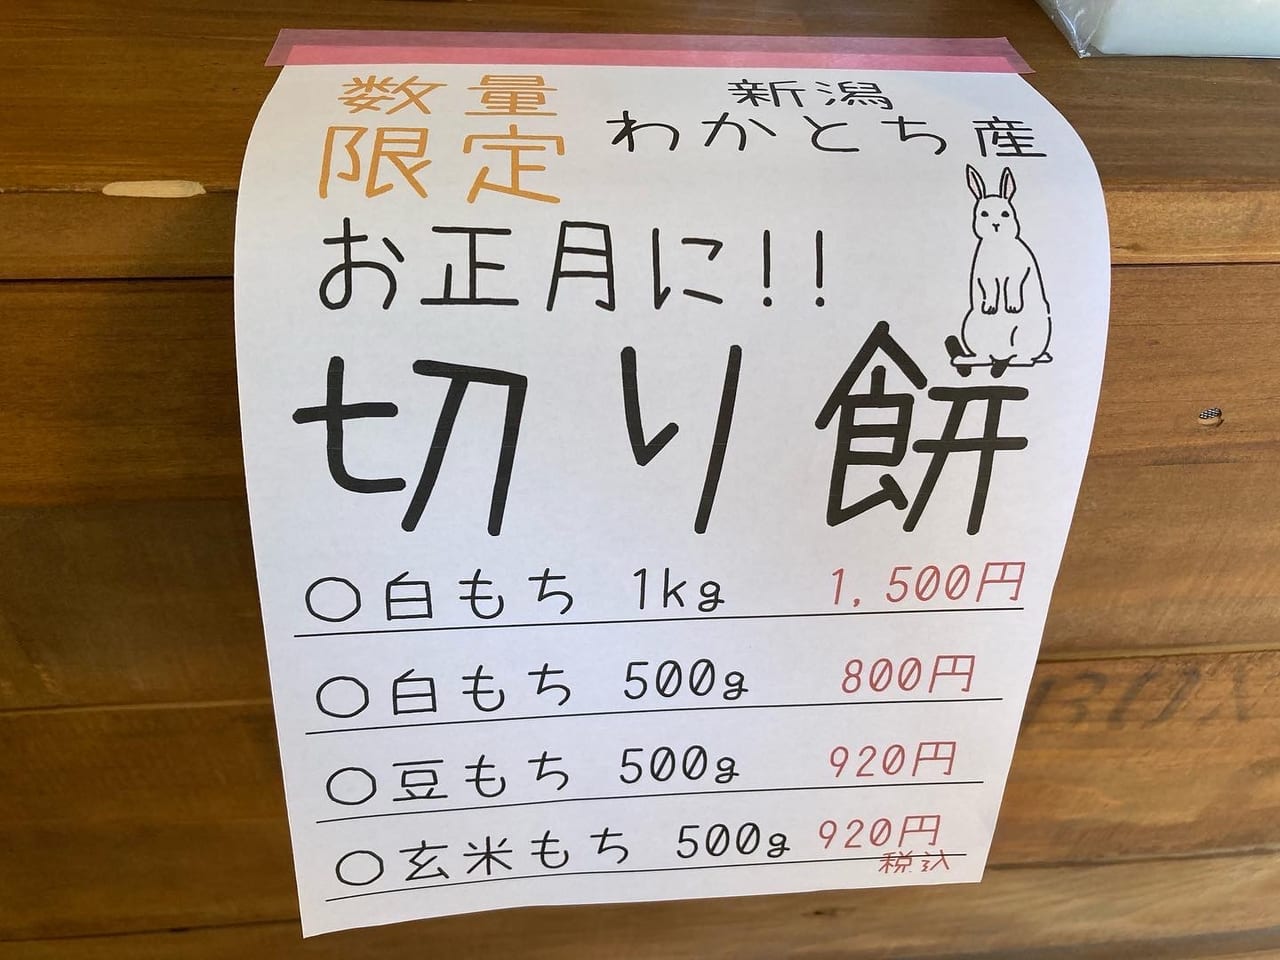 数量
限定
新潟
わかとち産
お正月に!!
切り餅
○白もち 1kg 1,500円
○白もち 500g 800円
○豆もち 500g 920円
○玄米もち 500g 920円
税込